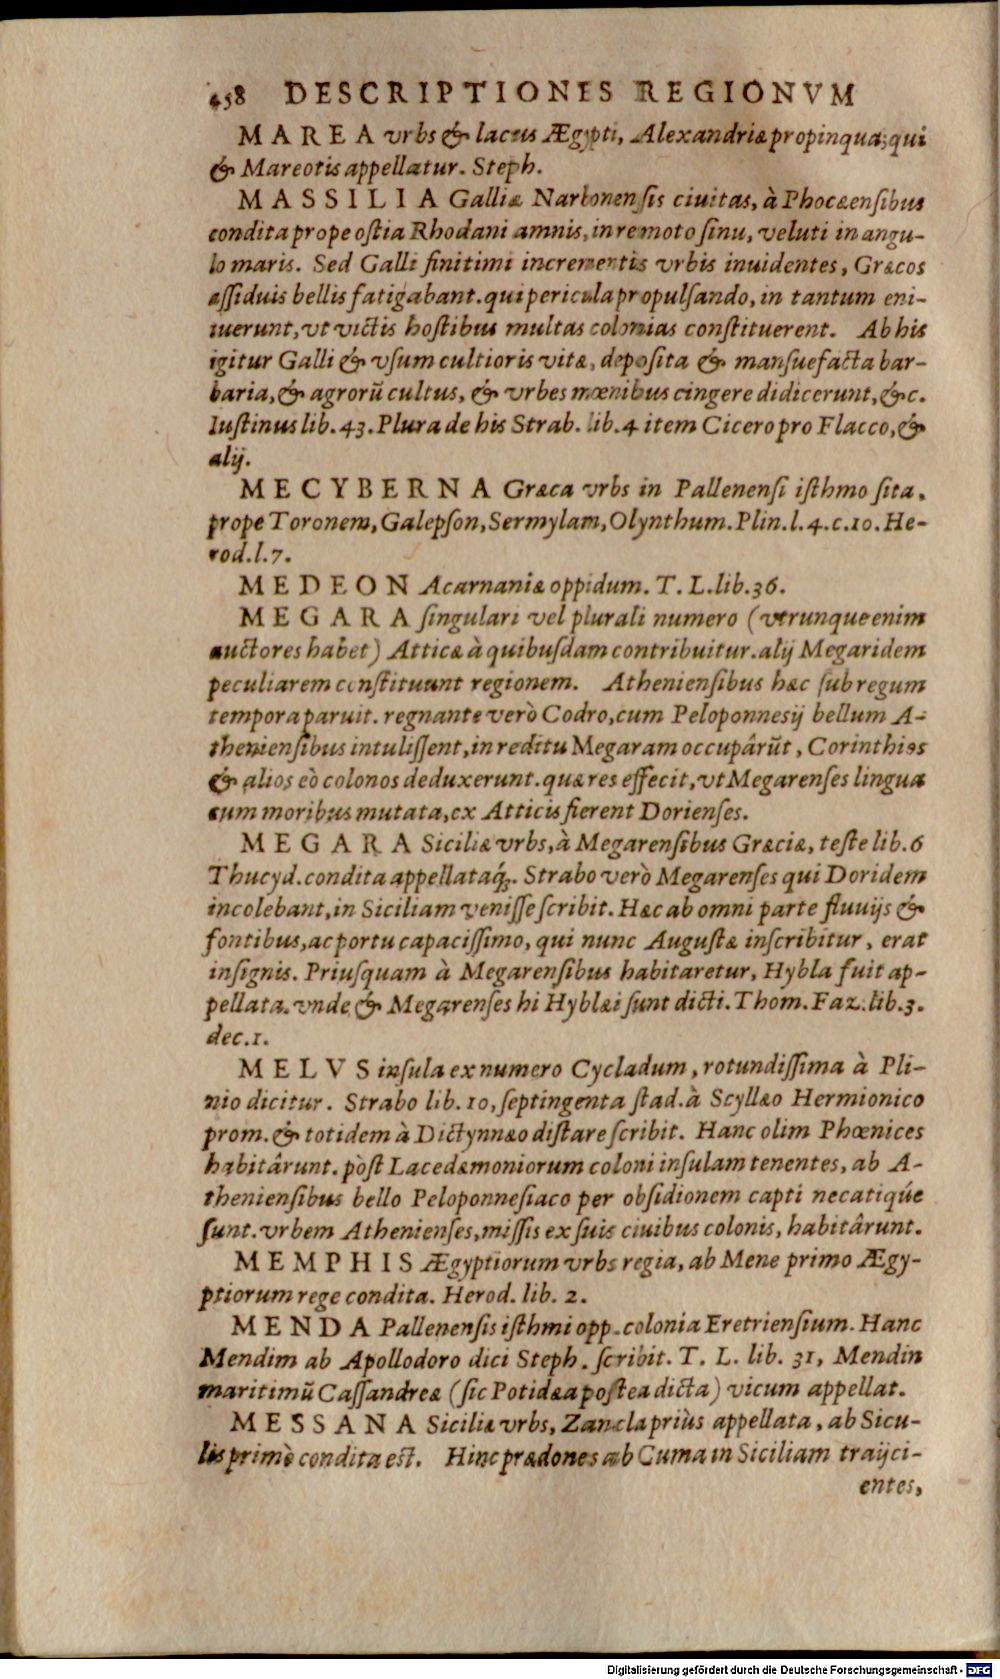 458 DESCRIPTIONES REGIONVM
MAREA vrbs & lacus Ægypti, Alexandriæ propinqua; qui
& Mareotis appellatur. Steph.
MASSILIA Galliæ Narbonensis ciuitas, à Phocæensibus
condita prope ostia Rhodani amnis, in remoto sinu, veluti in angu-
lo maris. Sed Galli finitimi incrementis vrbis inuidentes, Græcos
assiduis bellis fatigabant. qui pericula propulsando, in tantum eni-
tuerunt, vt victis hostibus multas colonias constituerent. Ab his
igitur Galli & vsum cultioris vitæ, deposita & mansuefacta bar-
baria, & agrorū cultus, & vrbes mœnibus cingere didicerunt, &c.
Iustinus lib. 43. Plura de his Strab. lib. 4 item Cicero pro Flacco, &
alij.
MECYBERNA Græca vrbs in Pallenensi isthmo sita,
prope Toronem, Galepson, Sermylam, Olynthum. Plin. l. 4. c. 10. He-
rod. l. 7.
MEDEON Acarnaniæ oppidum. T. L. lib. 36.
MEGARA singulari vel plurali numero (vtrunque enim
auctores habet) Atticæ à quibusdam contribuitur. alij Megaridem
peculiarem constituunt regionem. Atheniensibus hæc sub regum
tempora paruit. regnante verò Codro, cum Peloponnesij bellum A-
theniensibus intulissent, in reditu Megaram occupârūt, Corinthios
& alios eò colonos deduxerunt. quæ res effecit, vt Megarenses lingua
cum moribus mutata, ex Atticis fierent Dorienses.
MEGARA Siciliæ vrbs, à Megarensibus Græciæ, teste lib. 6
Thucyd. condita appellataq́;. Strabo verò Megarenses qui Doridem
incolebant, in Siciliam venisse scribit. Hæc ab omni parte fluuijs &
fontibus, ac portu capacissimo, qui nunc Augustæ inscribitur, erat
insignis. Priusquam à Megarensibus habitaretur, Hybla fuit ap-
pellata. vnde & Megarenses hi Hyblæi sunt dicti. Thom. Faz. lib. 3.
dec. 1.
MELVS insula ex numero Cycladum, rotundissima à Pli-
nio dicitur. Strabo lib. 10, septingenta stad. à Scyllæo Hermionico
prom. & totidem à Dictynnæo distare scribit. Hanc olim Phœnices
habitârunt. pòst Lacedæmoniorum coloni insulam tenentes, ab A-
theniensibus bello Peloponnesiaco per obsidionem capti necatiqúe
sunt. vrbem Athenienses, missis ex suis ciuibus colonis, habitârunt.
MEMPHIS Ægyptiorum vrbs regia, ab Mene primo Ægy-
ptiorum rege condita. Herod. lib. 2.
MENDA Pallenensis isthmi opp. colonia Eretriensium. Hanc
Mendim ab Apollodoro dici Steph. scribit. T. L. lib. 31, Mendin
maritimū Cassandreæ (sic Potidæa postea dicta) vicum appellat.
MESSANA Siciliæ vrbs, Zancla priùs appellata, ab Sicu-
lis primò condita est. Hinc prædones ab Cuma in Siciliam traijci-
entes,
Digitalisierung gefördert durch die Deutsche Forschungsgemeinschaft - DFG